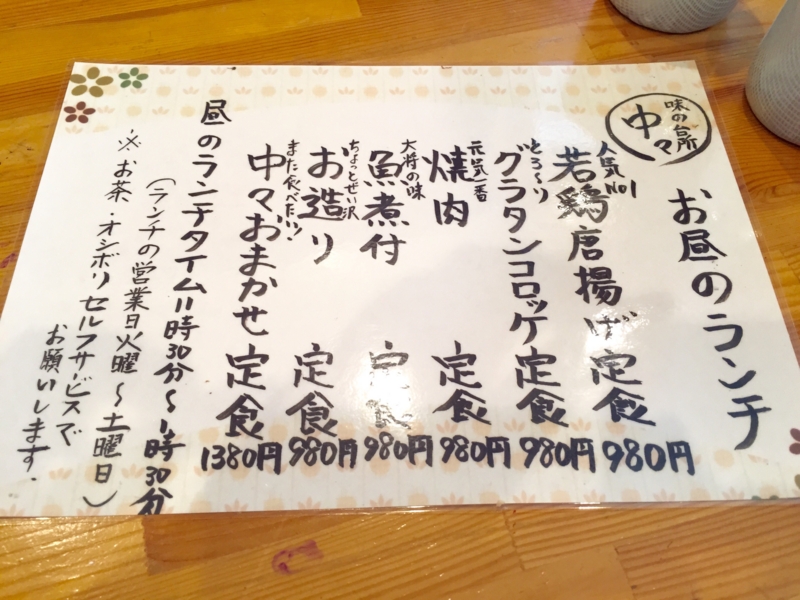 味の台所
中々
お昼のランチ
人気No1
若鶏唐揚げ定食 980円
とろ～り
グラタンコロッケ定食 980円
元気一番
焼肉定食 980円
大将の味
魚煮付定食 980円
ちょっとぜい沢
お造り定食 980円
また食べたい!
中々おまかせ定食 1380円
昼のランチタイム11時30分～1時30分
(ランチの営業日火曜～土曜日)
※お茶・オシボリセルフサービスで
お願いします.